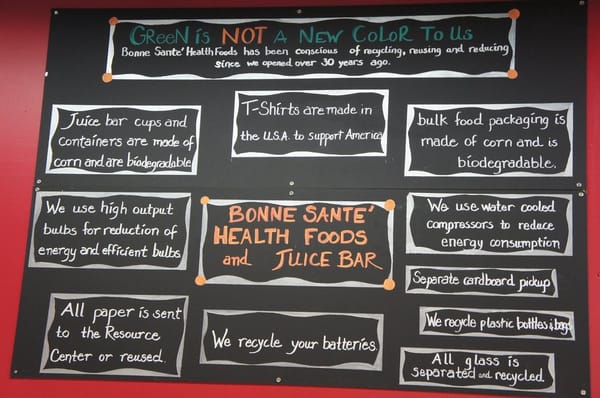 GReeN iS NOT A New ColoR To Us
Bonne Sante' Health Foods has been conscious of recycling, reusing and reducing
since we opened over 30 years ago.
Juice bar cups and
containers are made of
corn and are biodegradable
T-Shirts are made in
the U.S.A. to support America
bulk food packaging is
made of corn and is
biodegradable.
We use high output
bulbs for reduction of
energy and efficient bulbs
BONNE SANTE'
HEALTH FOODS
and JUICE BAR
We use water cooled
compressors to reduce
energy consumption
Separate cardboard pickup
We recycle plastic bottles & bags
All paper is sent
to the Resource
Center or reused.
We recycle your batteries.
All glass is
separated and recycled.